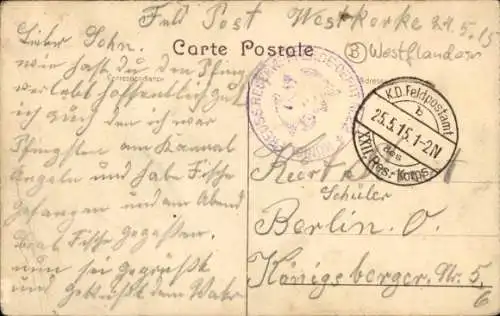 Feld Post Westkerke 24.5.15
Carte Postale
(B) Westflandern
Correspondance
Adresse
Lieber Sohn.
wie hast du den Pfing
verlebt hoffentlich gut
ich auch den ich war
Pfingsten am Kannal
Angeln und habe Fische
gefangen und am Abend
Fische gegessen.
nun sei gegrüßt
und geküßt dem Vater
K.D. Feldpostamt
b
25.5.15. 1-2N
des
XXII. Res.-Korps
Kurt
Schüler
Berlin. O.
Königsberger. Nr. 5
6